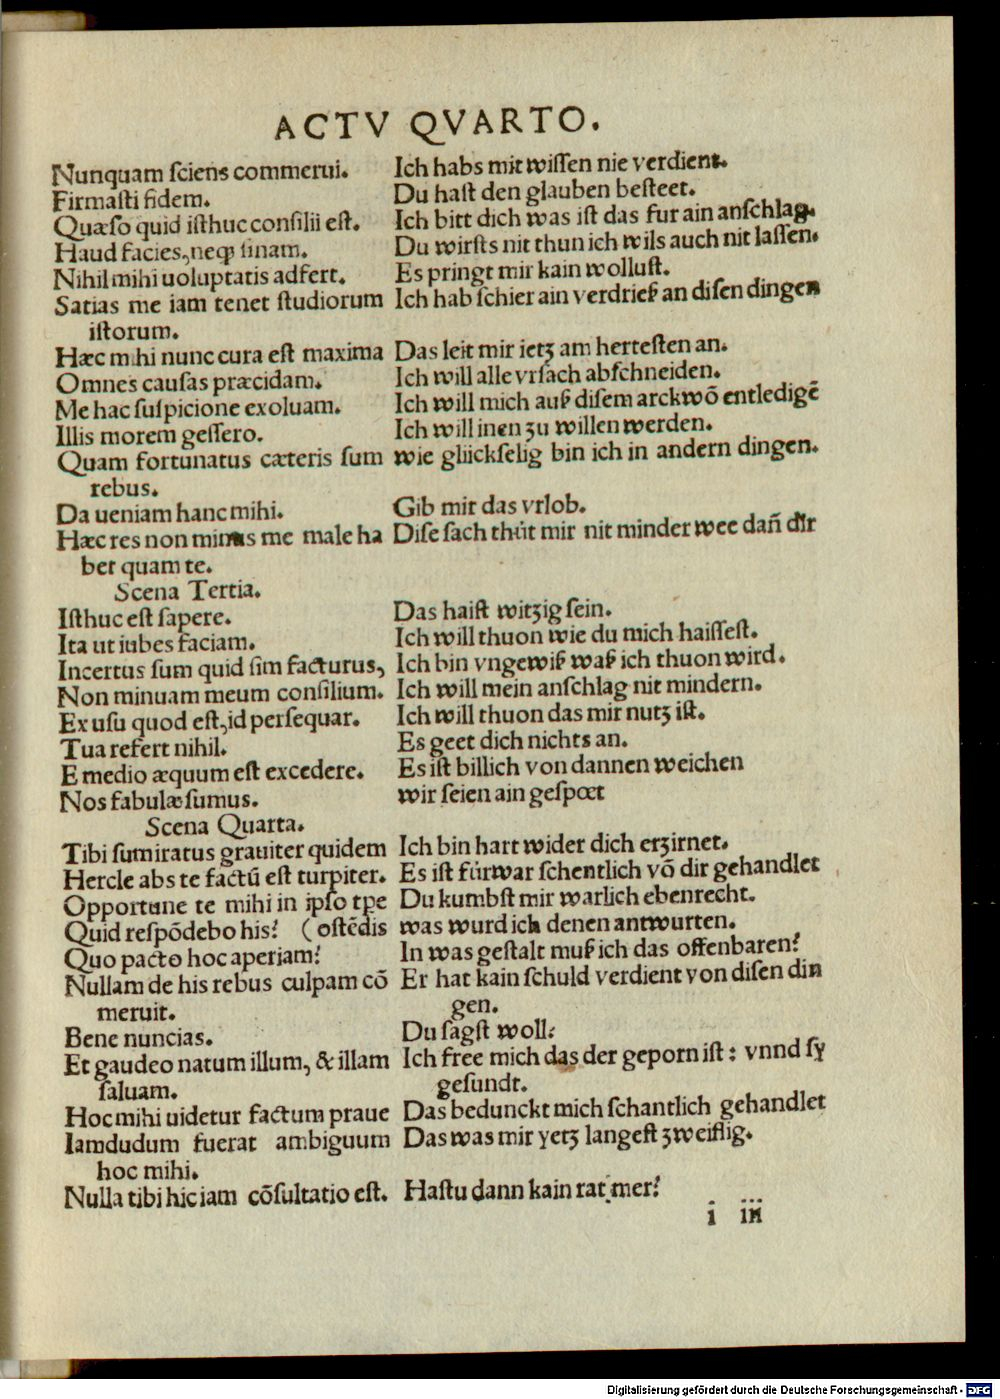 ACTV QVARTO.
Nunquam ſciens commerui. Ich habs mit wiſſen nie verdient.
Firmaſti fidem. Du haſt den glauben beſteet.
Quæſo quid iſthuc conſilii eſt. Ich bitt dich was iſt das fur ain anſchlag.
Haud facies, neqꝫ ſinam. Du wirſts nit thun ich wils auch nit laſſen.
Nihil mihi uoluptatis adfert. Es pringt mir kain wolluſt.
Satias me iam tenet ſtudiorum Ich hab ſchier ain verdrieß an diſen dingen
iſtorum.
Hæc mihi nunc cura eſt maxima Das leit mir ietz am herteſten an.
Omnes cauſas præcidam. Ich will alle vrſach abſchneiden.
Me hac ſuſpicione exoluam. Ich will mich auß diſem arckwō entledigē
Illis morem geſſero. Ich will inen zu willen werden.
Quam fortunatus cæteris ſum wie glückſelig bin ich in andern dingen.
rebus.
Da ueniam hanc mihi. Gib mir das vrlob.
Hæc res non minus me male ha Diſe ſach thůt mir nit minder wee dañ dir
bet quam te.
Scena Tertia.
Iſthuc eſt ſapere. Das haiſt witzig ſein.
Ita ut iubes faciam. Ich will thuon wie du mich haiſſeſt.
Incertus ſum quid ſim facturus, Ich bin vngewiß waß ich thuon wird.
Non minuam meum conſilium. Ich will mein anſchlag nit mindern.
Ex uſu quod eſt, id perſequar. Ich will thuon das mir nutz iſt.
Tua refert nihil. Es geet dich nichts an.
E medio æquum eſt excedere. Es iſt billich von dannen weichen
Nos fabulæ ſumus. wir ſeien ain geſpœt
Scena Quarta.
Tibi ſum iratus grauiter quidem Ich bin hart wider dich erzirnet.
Hercle abs te factū eſt turpiter. Es iſt fürwar ſchentlich vō dir gehandlet
Opportune te mihi in ipſo tꝑe Du kumbſt mir warlich ebenrecht.
Quid reſpōdebo his? (oſtēdis was wurd ich denen antwurten.
Quo pacto hoc aperiam? In was geſtalt muß ich das offenbaren?
Nullam de his rebus culpam cō Er hat kain ſchuld verdient von diſen din
meruit. gen.
Bene nuncias. Du ſagſt woll.
Et gaudeo natum illum, & illam Ich free mich das der geporn iſt: vnnd ſy
ſaluam. geſundt.
Hoc mihi uidetur factum praue Das bedunckt mich ſchantlich gehandlet
Iamdudum fuerat ambiguum Das was mir yetz langeſt zweiflig.
hoc mihi.
Nulla tibi hic iam cōſultatio eſt. Haſtu dann kain rat mer?
i iii
Digitalisierung gefördert durch die Deutsche Forschungsgemeinschaft - DFG